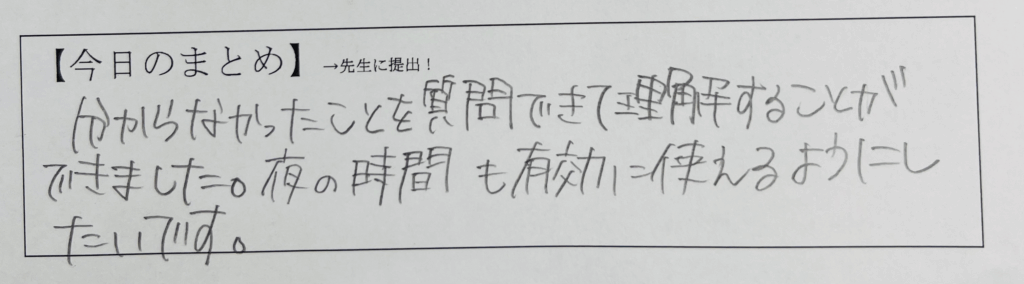 【今日のまとめ】→先生に提出！
分からなかったことを質問できて理解することが
できました。夜の時間も有効に使えるようにし
たいです。